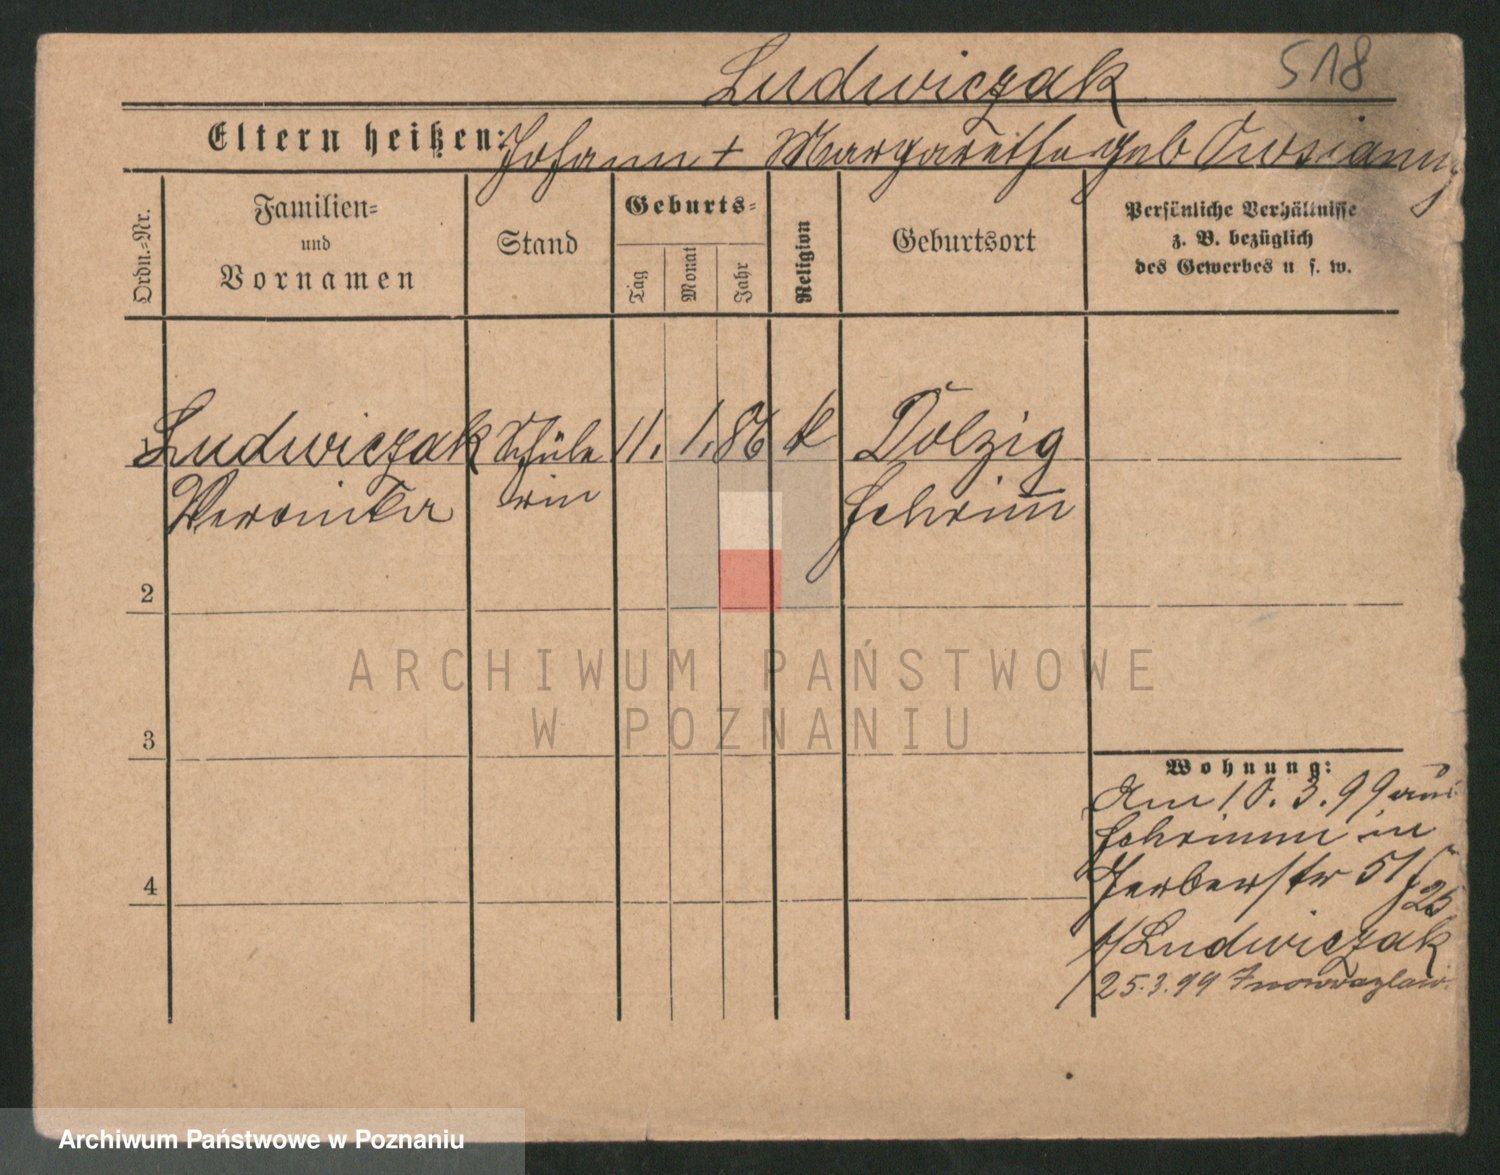 Ludwiczak 518
Eltern heißen: Johann + Margarethe geb
Ordn.-Nr.
Familien-
und
Vornamen
Stand
Geburts-
Tag
Monat
Jahr
Religion
Geburtsort
Persönliche Verhältnisse
z. B. bezüglich
des Gewerbes u s. w.
1 Ludwiczak Schüle 11. 1. 86 k Dolzig
Veronika rin Schrimm
2
ARCHIWUM PAŃSTWOWE
W POZNANIU
3
Wohnung:
Am 10.3.99 aus
Schrimm in
Gerberstr 51
25
b/ Ludwiczak
25.3.99 Inowrazlaw
4
Archiwum Państwowe w Poznaniu